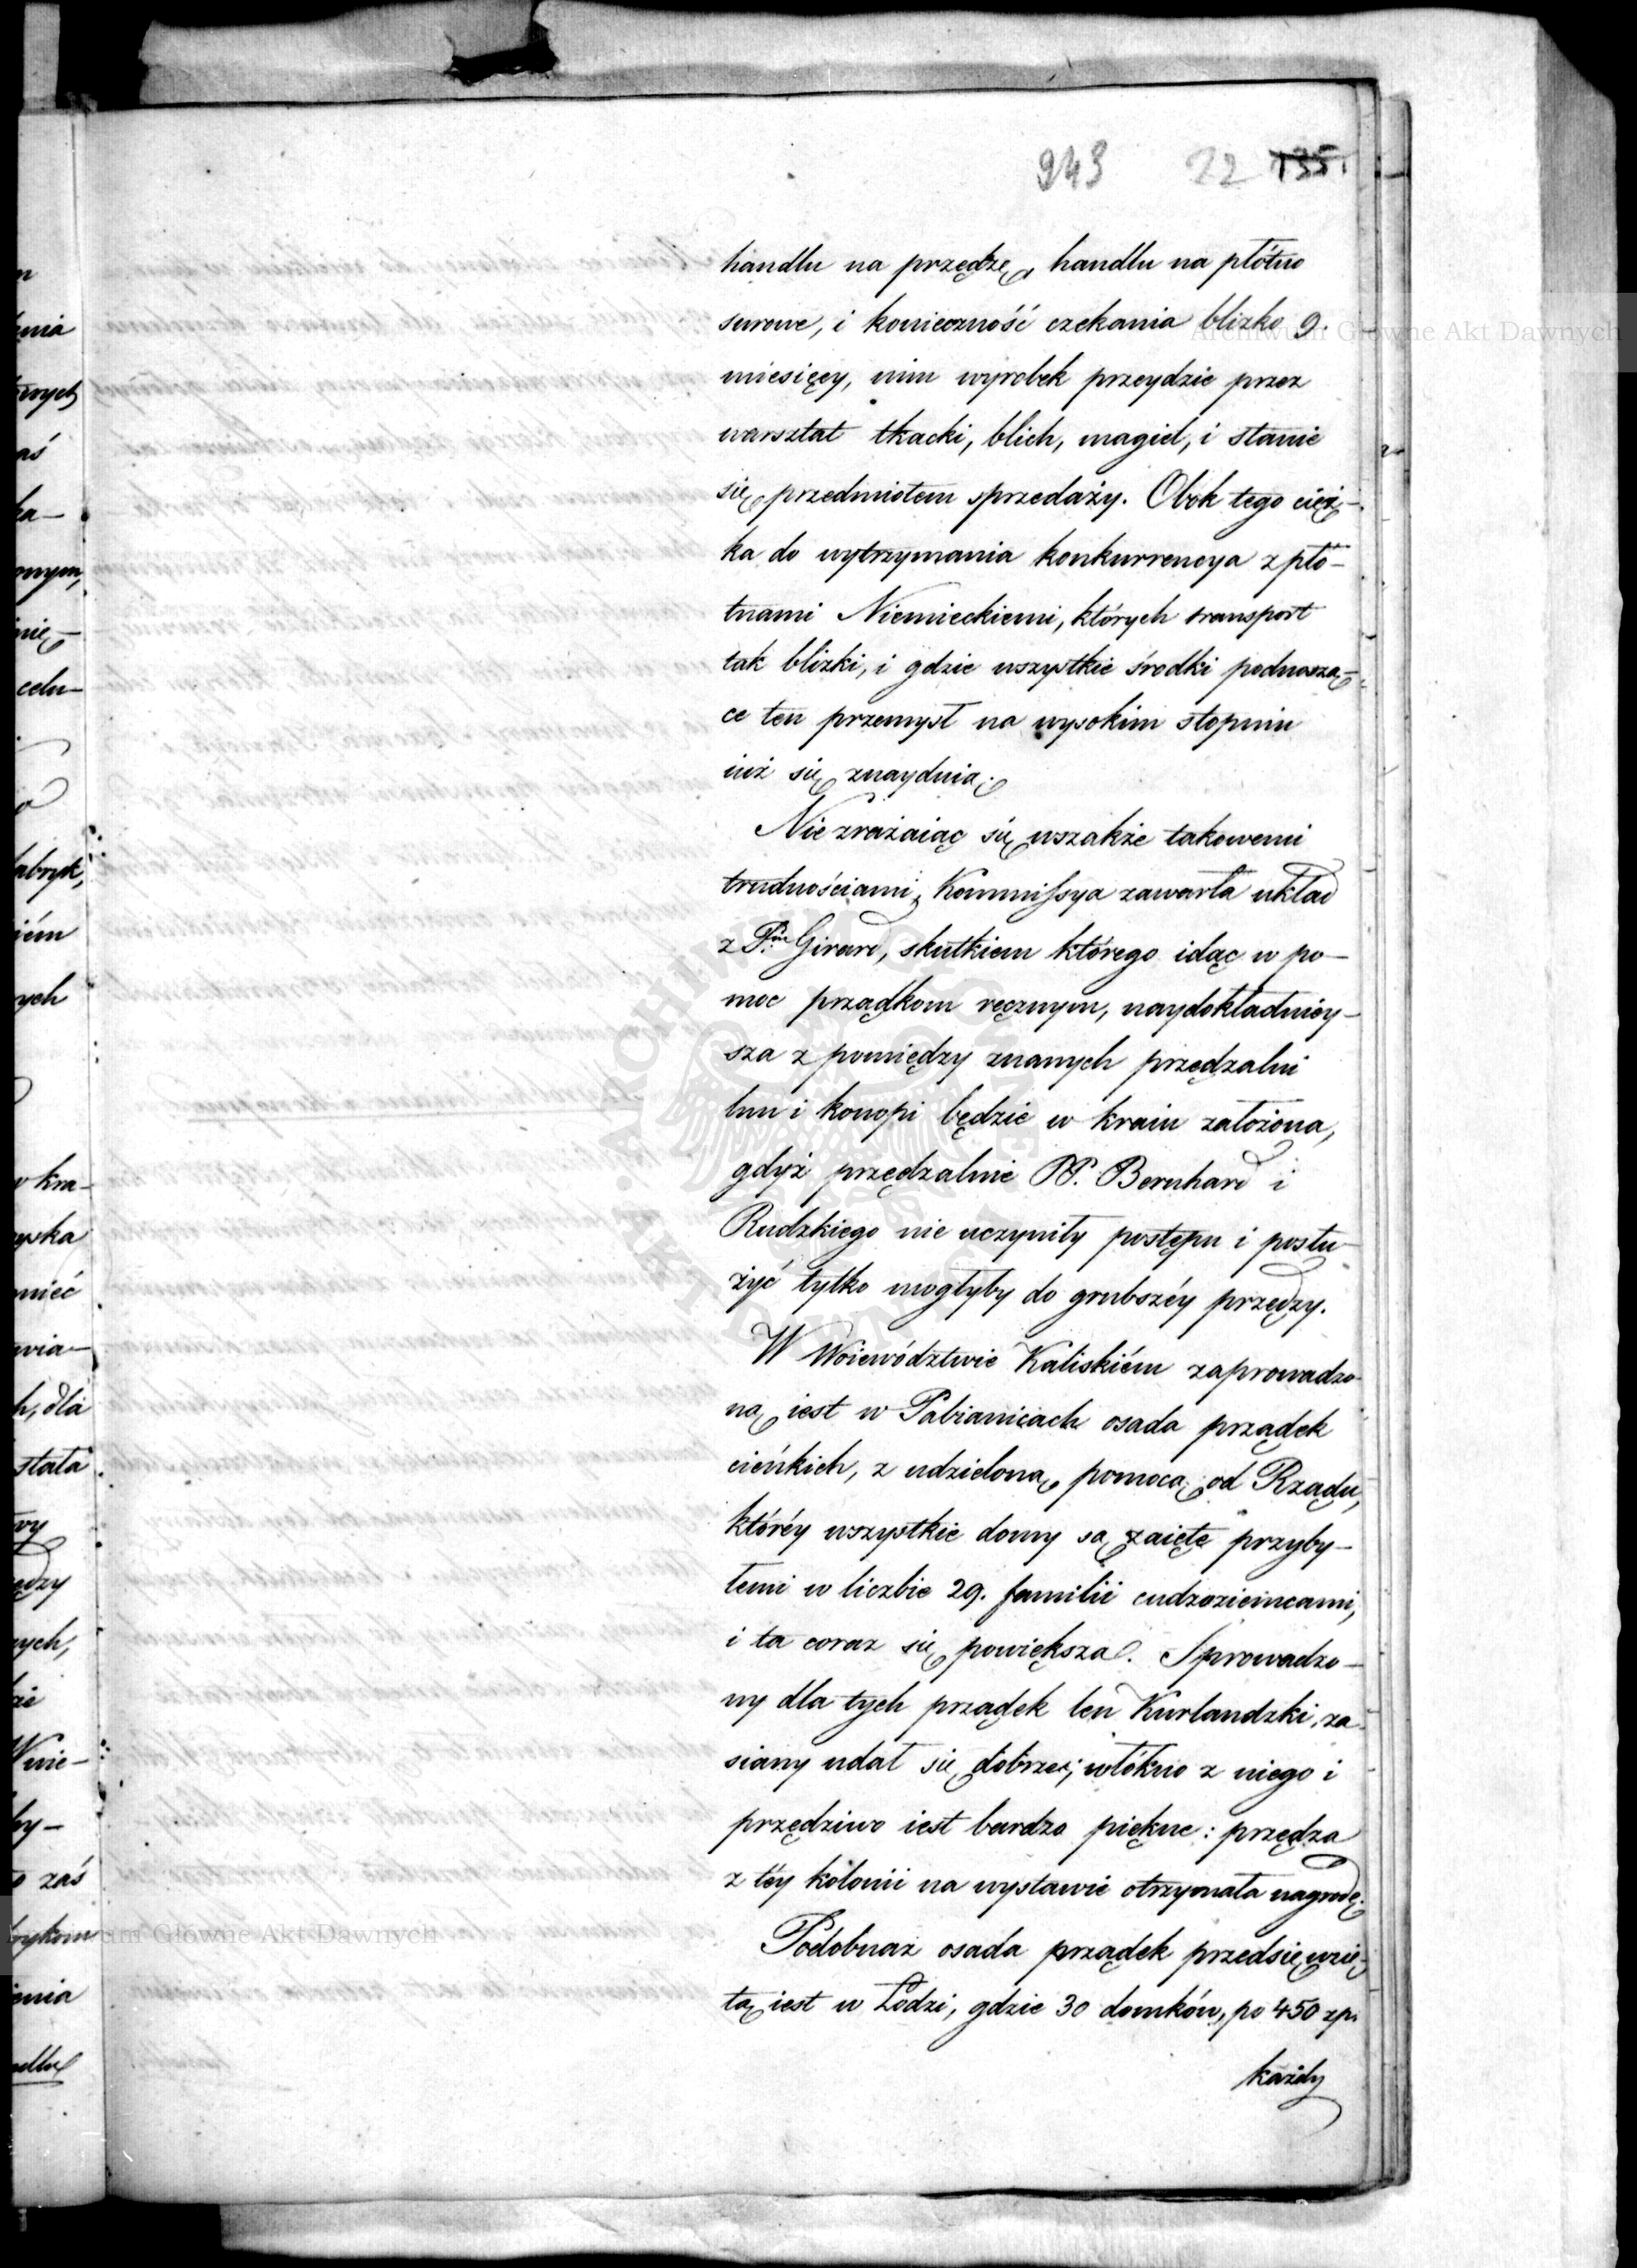 943 22 135.
handlu na przędzę, handlu na płótno
surowe, i konieczność czekania blizko 9.
Archiwum Główne Akt Dawnych
miesięcy, nim wyrobek przeydzie przez
warsztat tkacki, blich, magiel, i stanie
się przedmiotem sprzedaży. Obok tego cięż-
ka do wytrzymania konkurrencya z płó-
tnami Niemieckiemi, których transport
tak blizki, i gdzie wszystkie środki podnoszą-
ce ten przemysł na wysokim stopniu
iuż się znayduią.
Nie zrażaiąc się wszakże takowemi
trudnościami, Kommissya zawarła układ
z P.em Girard, skutkiem którego idąc w po-
moc prządkom ręcznym, naydokładniey-
sza z pomiędzy znanych przędzalni
lnu i konopi będzie w kraiu założona,
gdyż przędzalnie PP. Bernhard i
Rudzkiego nie uczyniły postępu i posłu-
żyć tylko mogłyby do grubszéy przędzy.
W Woiewództwie Kaliskiém zaprowadzo-
ną iest w Pabianicach osada prządek
cieńkich, z udzieloną pomocą od Rządu,
któréy wszystkie domy są zaięte przyby-
łemi w liczbie 29. familii cudzoziemcami,
i ta coraz się powiększa. Sprowadzo-
ny dla tych prządek len Kurlandzki, za-
siany udał się dobrze; włókno z niego i
przędziwo iest bardzo piękne: przędza
z téy kolonii na wystawie otrzymała nagrodę.
Podobnaż osada prządek przedsięwzię-
tą iest w Łodzi, gdzie 30 domków, po 450 zp.
każdy
enia
aś
ka-
onym,
nię-
celu-
abryk,
iém
ych
kra-
yska
mieć
wia-
h, dla
stała
wy
ędzy
ych,
Wnie-
by-
zaś
brykom
Główne Akt Dawnych
enia